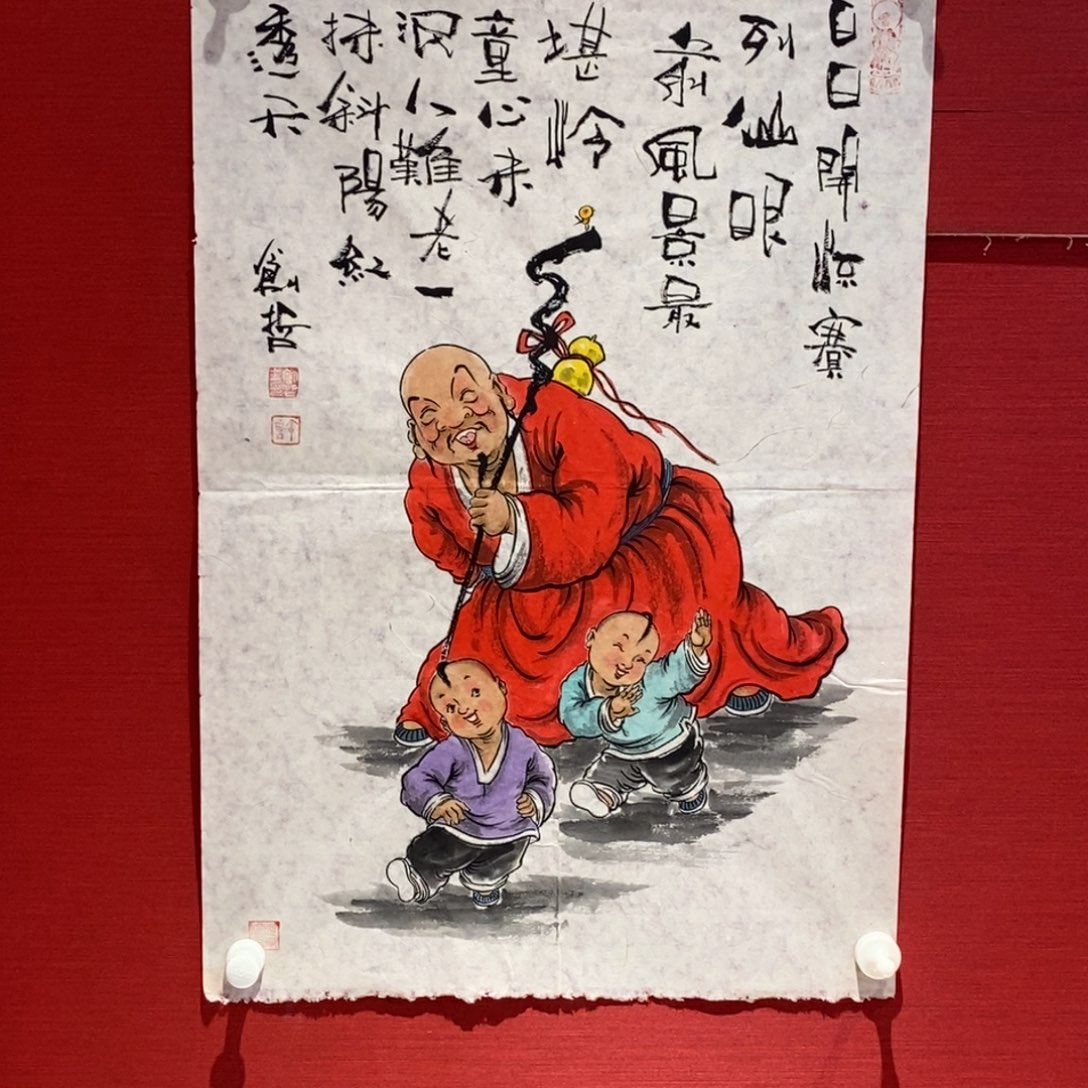 日日開怀賽
列仙眼
前風景最
堪怜
童心未
泯人難老一
抹斜陽紅
透天
創哲